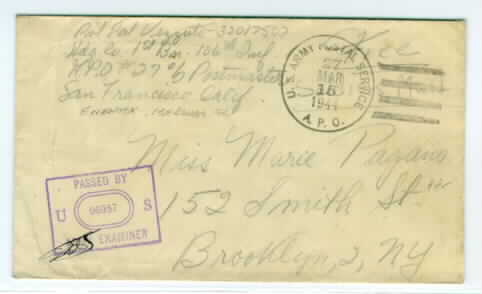 Pvt Sal Vezzuto 32017567
Hdq Co. 1st Bn. 106th Inf
A.P.O #27 c/o Postmaster
San Francisco Calif.
Free
U.S. ARMY POSTAL SERVICE
27
MAR
15
1944
A. P. O.
Miss Marie Pagano
152 Smith St
Brooklyn, 2, NY
PASSED BY
U 06057 S
EXAMINER